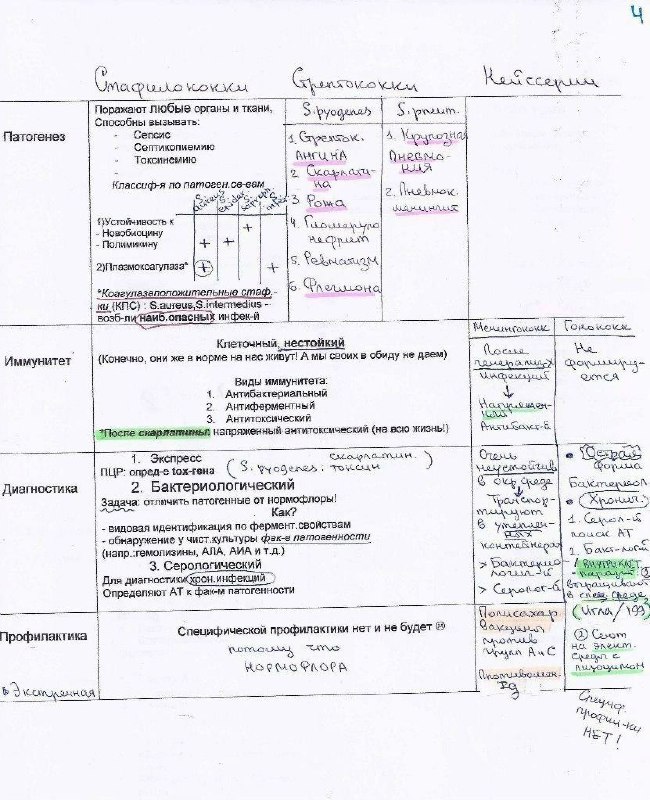 4
Стафилококки Стрептококки Нейссерии
Патогенез
Поражают любые органы и ткани,
Способны вызывать:
- Сепсис
- Септикопиемию
- Токсинемию
-
Классиф-я по патоген.св-вам
S. aureus S. epider. S. saproph. S. inter.
1)Устойчивость к
- Новобиоцину +
- Полимикину + +
2)Плазмокоагулаза* + +
*Коагулазеположительные стаф.-
ки (КПС) : S.aureus,S.intermedius -
возб-ли наиб.опасных инфек-й
S. pyogenes
1. Стрепток.
АНГИНА
2. Скарлати-
на
3. Рожа
4. Гломеруло
нефрит
5. Ревматизм
6. Флегмона
S. pneum.
1. Крупозная
Пневмо-
ния
2. Пневмок.
менингит
Иммунитет
Клеточный, нестойкий
(Конечно, они же в норме на нас живут! А мы своих в обиду не даем)
Виды иммунитета:
1. Антибактериальный
2. Антиферментный
3. Антитоксический
*После скарлатины напряженный антитоксический (на всю жизнь!)
Менингококк
После
генерализ
инфекций
↓
Напряжен-
ный
Антибакт-й
Гонококк
Не
формиру-
ется
Диагностика
1. Экспресс
ПЦР: опред-е tox-гена ( S. pyogenes: скарлатин. токсин )
2. Бактериологический
Задача: отличить патогенные от нормофлоры!
Как?
- видовая идентификация по фермент.свойствам
- обнаружение у чист.культуры фак-в патовенности
(напр.:гемолизины, АЛА, АИА и т.д.)
3. Серологический
Для диагностики хрон.инфекций
Определяют АТ к фак-м патогенности
Очень
неустойчив
в окр среде
↓
Транспор-
тируют
в утеплен-
ных
контейнерах
> Бактерио
логич-й
> Серолог-й
• Острая
форма
Бактериол.
• Хронич.
1. Серол-й
поиск АТ
2. Бакт-логий
! ВНУТРИКЛЕТ.
паразит ①
выращивают
в спец. среде
(Игла/199)
② Сеют
на элект.
среды с
лизоцимом
Профилактика
Специфической профилактики нет и не будет ☹
потому что
НОРМОФЛОРА
Полисахар
вакцины
против
групп А и С
Противомен.
Ig
Экстренная
Специф.
профил-ки
НЕТ!